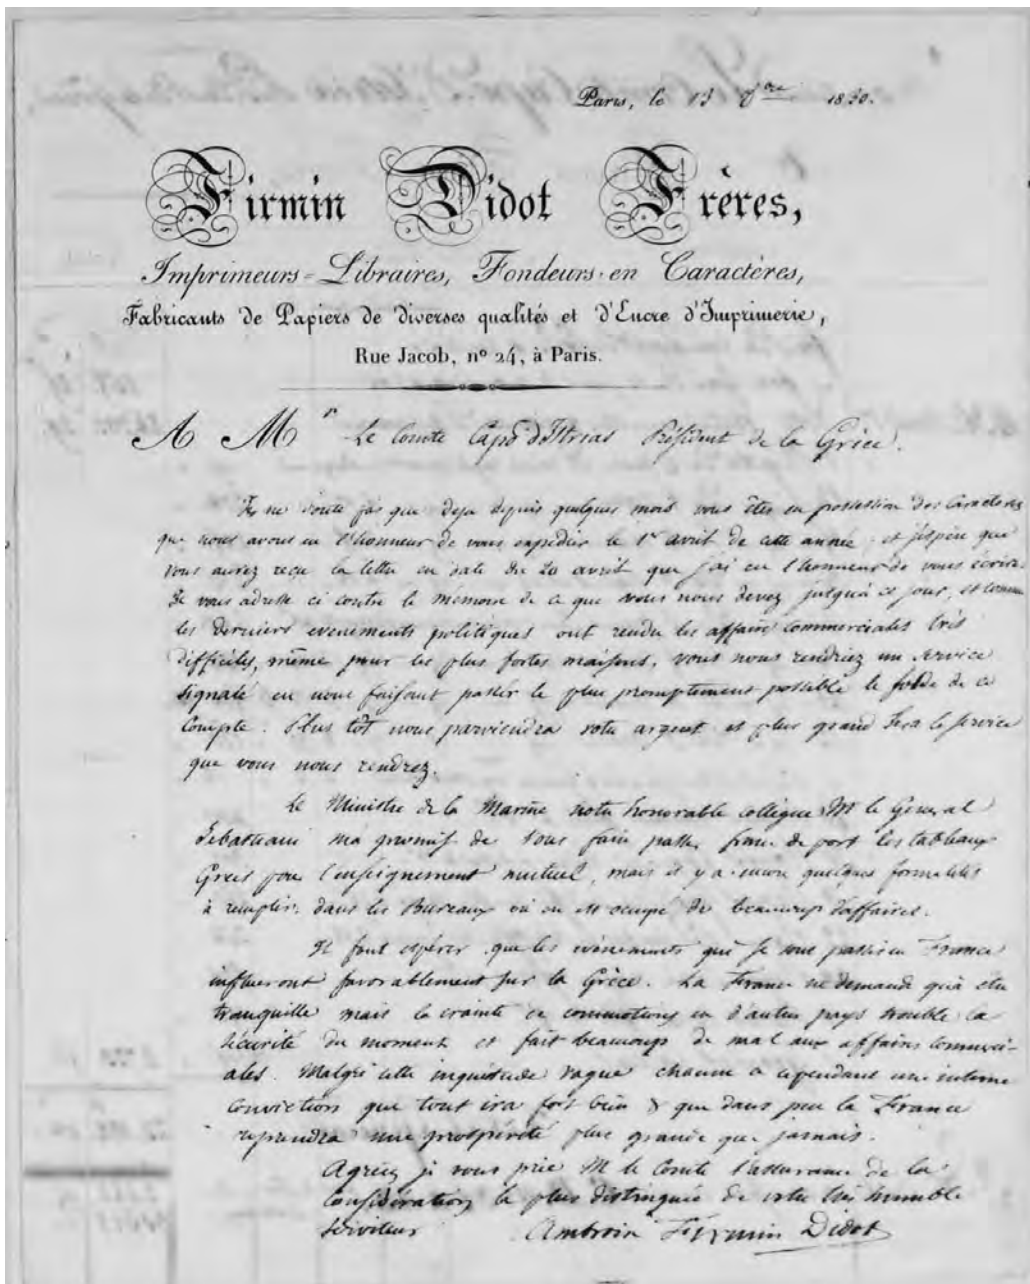 Paris, le 13 8bre 1830.
Firmin Didot Frères,
Imprimeurs=Libraires, Fondeurs en Caractères,
Fabricants de Papiers de diverses qualités et d'Encre d'Imprimerie,
Rue Jacob, nº 24, à Paris.
A Mr Le Comte Capo d'Istrias Président de la Grèce.
Je ne doute pas que deja depuis quelques mois vous êtes en possession des Caractères
que nous avons eu l'honneur de vous expédier le 1er avril de cette année et j'espère que
vous aurez reçu la lettre en date du 20 avril que j'ai eu l'honneur de vous écrire.
Je vous adresse ci contre le memoire de ce que vous nous devez jusqu'à ce jour, et comme
les derniers evenements politiques ont rendu les affaires commerciales très
difficiles, même pour les plus fortes maisons, vous nous rendriez un service
signalé en nous faisant passer le plus promptement possible le solde de ce
Compte. Plus tôt nous parviendra votre argent et plus grand sera le service
que vous nous rendrez.
Le Ministre de la Marine notre honorable collègue Mr le Général
Sebastiani m'a promis de vous faire passer franc de port les tableaux
Grecs pour l'enseignement mutuel, mais il y a encore quelques formalités
à remplir dans les Bureaux où on est occupé de beaucoup d'affaires.
Il faut espérer que les evènements qui se sont passés en France
influeront favorablement sur la Grèce. La France ne demande qu'à être
tranquille mais la crainte de commotions en d'autres pays trouble la
sécurité du moment et fait beaucoup de mal aux affaires commerci-
ales. Malgré cette inquiétude vague chacun a cependant une intime
conviction que tout ira fort bien & que dans peu la France
reprendra une prospérité plus grande que jamais.
Agréez je vous prie Mr le Comte l'assurance de la
Considération la plus distinguée de votre très humble
serviteur Ambroise Firmin Didot